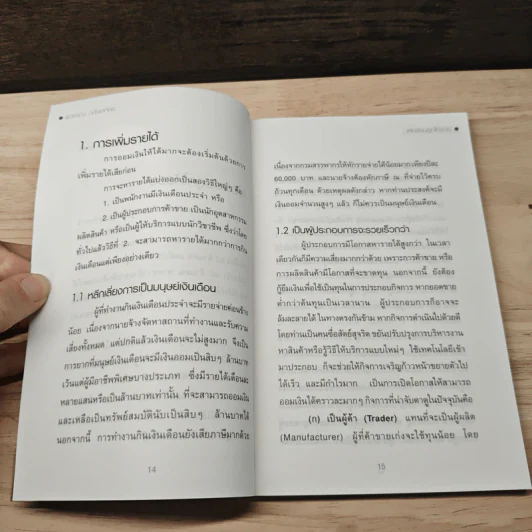 1. การเพิ่มรายได้
การออมเงินให้ได้มากจะต้องเริ่มต้นด้วยการ
เพิ่มรายได้เสียก่อน
การจะหารายได้แบ่งออกเป็นสองวิธีใหญ่ๆ คือ
1. เป็นพนักงานมีเงินเดือนประจำ หรือ
2. เป็นผู้ประกอบการค้าขาย เป็นนักอุตสาหกรรม
ผลิตสินค้า หรือเป็นผู้ให้บริการแบบนักวิชาชีพ ซึ่งว่าโดย
ทั่วไปแล้ววิธีที่ 2. จะสามารถหารายได้มากกว่าการกิน
เงินเดือนแต่เพียงอย่างเดียว
1.1 หลีกเลี่ยงการเป็นมนุษย์เงินเดือน
ผู้ที่ทำงานกินเงินเดือนประจำจะมีรายจ่ายค่อนข้าง
น้อย เนื่องจากนายจ้างจัดหาสถานที่ทำงานและรับความ
เสี่ยงทั้งหมด แต่ปกติแล้วเงินเดือนจะไม่สูงมาก จึงเป็น
การยากที่มนุษย์เงินเดือนจะมีเงินออมเป็นสิบๆ ล้านบาท
เว้นแต่ผู้มีอาชีพพิเศษบางประเภท ซึ่งมีรายได้เดือนละ
หลายแสนหรือเป็นล้านบาทเท่านั้น ที่จะสามารถออมเงิน
และเหลือเป็นทรัพย์สมบัตินับเป็นสิบๆ ล้านบาทได้
นอกจากนี้ การทำงานกินเงินเดือนยังเสียภาษีมากด้วย
14
เนื่องจากกรมสรรพากรให้หักรายจ่ายได้น้อยมาก เพียงปีละ
60,000. บาท. และนายจ้างต้องหักภาษี ณ ที่จ่ายไว้ครบ
ถ้วนทุกเดือน ด้วยเหตุผลดังกล่าว หากท่านประสงค์จะมี
เงินออมจำนวนสูงๆ แล้ว ก็ไม่ควรเป็นมนุษย์เงินเดือน.
1.2 เป็นผู้ประกอบการจะรวยเร็วกว่า
ผู้ประกอบการมีโอกาสหารายได้สูงกว่า ในเวลา
เดียวกันก็มีความเสี่ยงมากกว่าด้วย เพราะการค้าขาย หรือ
การผลิตสินค้ามีโอกาสที่จะขาดทุน นอกจากนี้ ยังต้อง
กู้ยืมเงินเพื่อใช้เป็นทุนในการประกอบกิจการ หากยอดขาย
ต่ำกว่าต้นทุนเป็นเวลานาน ผู้ประกอบการก็อาจจะ
ล้มละลายได้ ในทางตรงกันข้าม หากกิจการดำเนินไปด้วยดี
โดยท่านเป็นคนซื่อสัตย์สุจริต ขยันปรับปรุงการบริหารงาน
หาสินค้าหรือรู้วิธีให้บริการแบบใหม่ๆ ใช้เทคโนโลยีเข้า
มาประกอบ ก็จะช่วยให้กิจการเจริญก้าวหน้าขยายตัวไป
ได้เร็ว และมีกำไรมาก เป็นการเปิดโอกาสให้สามารถ
ออมเงินได้คราวละมากๆ กิจการที่น่าจับตาดูในปัจจุบันคือ
(ก) เป็นผู้ค้า (Trader) แทนที่จะเป็นผู้ผลิต
(Manufacturer) ผู้ที่ค้าขายเก่งจะใช้ทุนน้อย โดย
15